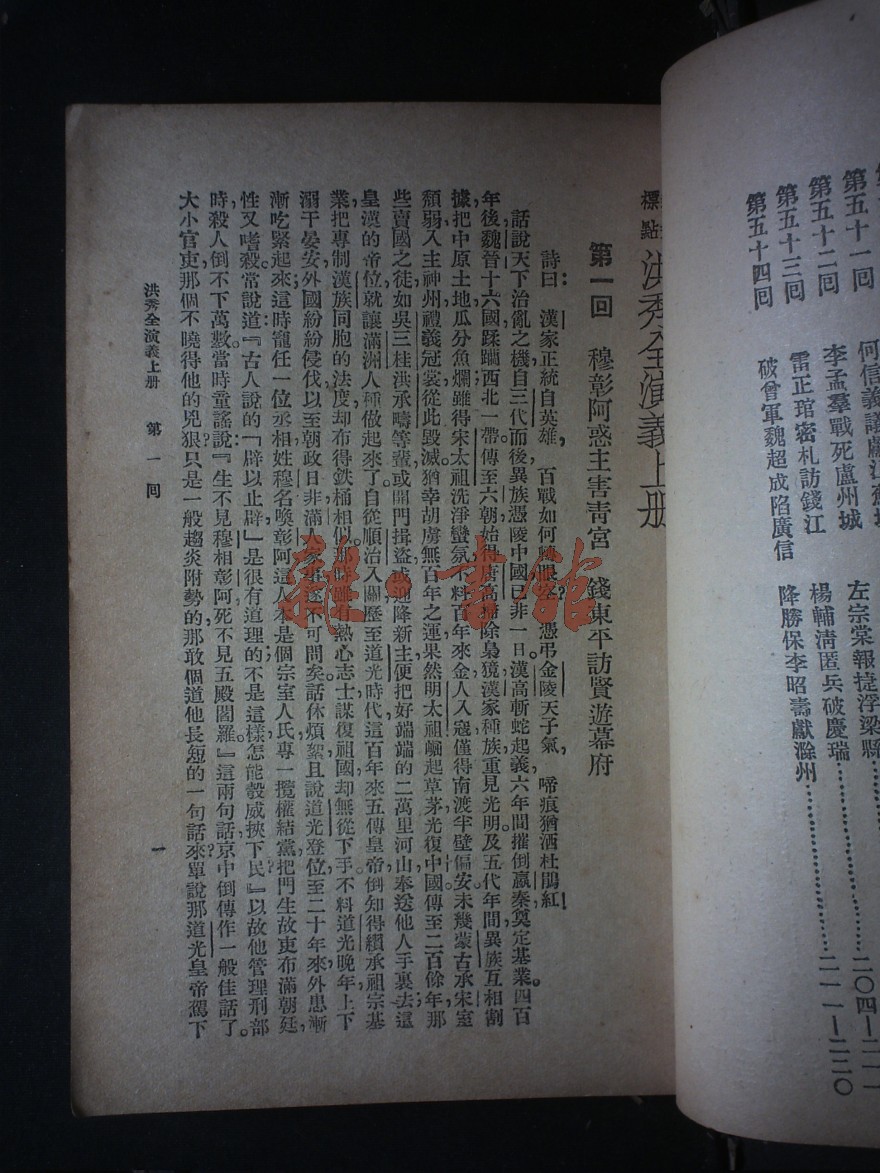 第五十一回
何信義議
左宗棠報捷浮梁縣…………二〇四—二一一
第五十二回
李孟羣戰死廬州城
第五十三回
雷正琯密札訪錢江
楊輔清匿兵破慶瑞
第五十四回
破曾軍魏超成陷廣信
降勝保李昭壽獻滁州…………二一一—二二〇
標點
洪秀全演義上册
第一回　穆彰阿惑主害青宮　錢東平訪賢遊幕府
詩曰：漢家正統自英雄，百戰如何　眼空？憑弔金陵天子氣，啼痕猶洒杜鵑紅！
話說天下治亂之機自三代而後，異族憑陵中國，已非一日。漢高斬蛇起義，六年間摧倒嬴秦，奠定基業。四百
年後，魏晉十六國蹂躪西北一帶，傳至六朝，始得唐高掃除梟獍，漢家種族重見光明。及五代年間，異族互相割
據，把中原土地瓜分魚爛；雖得宋太祖洗淨蠻氛，不料百年來金人入寇，僅得南渡半壁偏安。未幾蒙古承宋室
頹弱，入主神州，禮義冠裳從此毀滅。猶幸胡虜無百年之運，果然明太祖崛起草茅，光復中國。傳至二百餘年，那
些賣國之徒，如吳三桂洪承疇等輩，或開門揖盜，或迎降新主，便把好端端的二萬里河山，奉送他人手裏去。這
皇漢的帝位，就讓滿洲人種做起來了。自從順治入關，歷至道光時代，這百年來五傳皇帝，倒知得纘承祖宗基
業，把專制漢族同胞的法度，却布得鉄桶相似。那時雖有熱心志士，謀復祖國，却無從下手。不料道光晚年，上下
溺于晏安，外國紛紛侵伐，以至朝政日非，滿人家事，遂不可問矣。話休煩絮，且說道光登位至二十年來，外患漸
漸吃緊起來，這時寵任一位丞相，姓穆名喚彰阿。這人本是個宗室人氏，專一攬權結黨，把門生故吏布滿朝廷，
性又嗜殺，常說道：『古人說的「辟以止辟」是很有道理的，不是這樣，怎能彀威挾下民？』以故他管理刑部
時，殺人倒不下萬數。當時童謠說：『生不見穆相彰阿，死不見五殿閻羅。』這兩句話，京中倒傳作一般佳話了。
大小官吏，那個不曉得他的兇狠？只是一般趨炎附勢的，那敢個道他長短的一句話來？單說那道光皇帝駕下
洪秀全演義上册　第一回
一
雜·書館